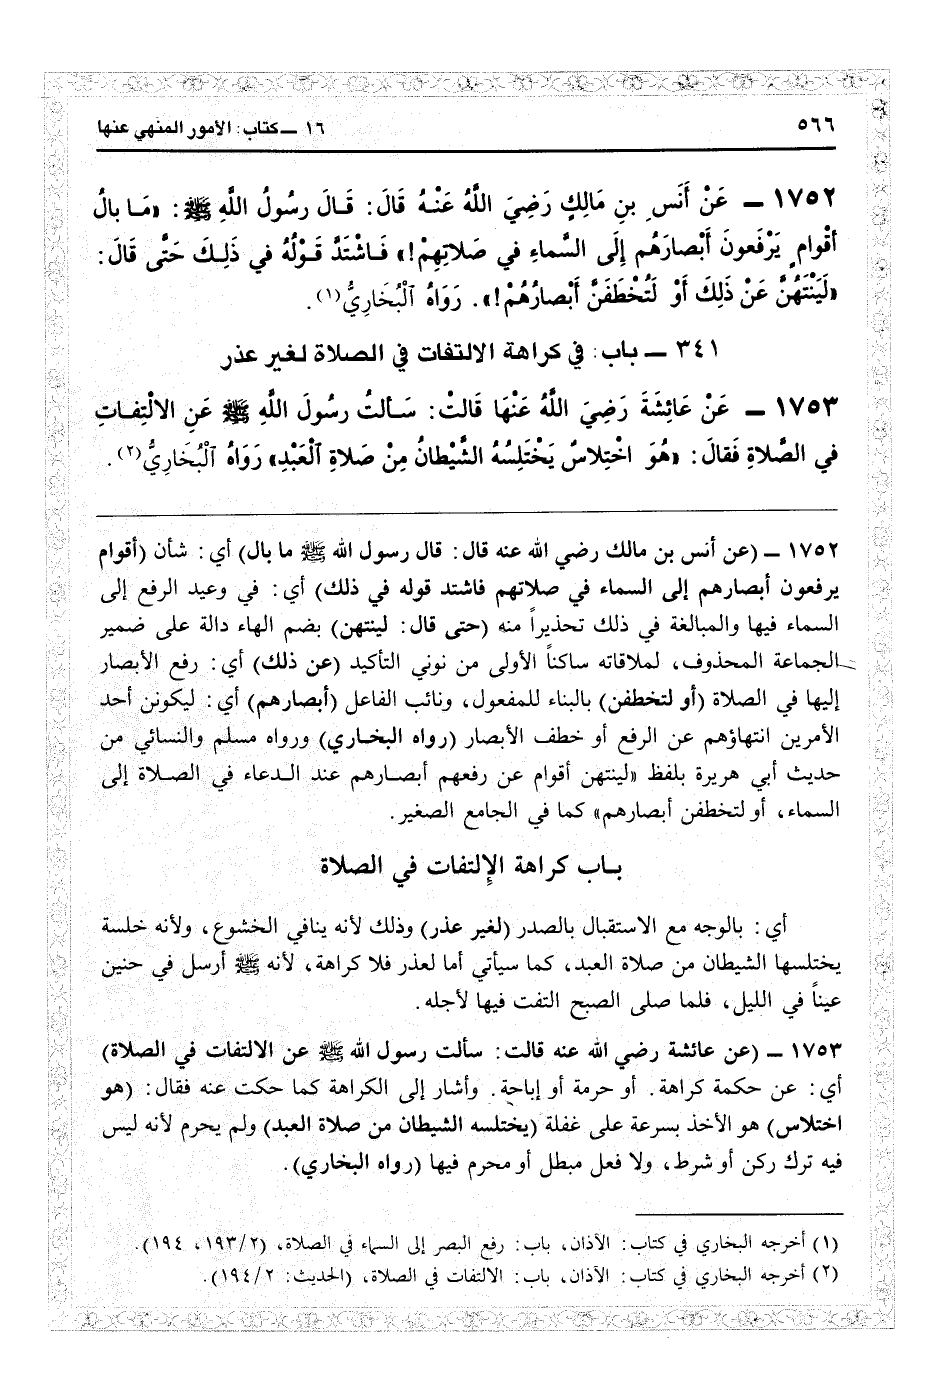 ٥٦٦
١٦ ــ كتاب: الأمور المنهي عنها
١٧٥٢ ــ عَنْ أَنَسِ بنِ مَالِكٍ رَضِيَ اللَّهُ عَنْهُ قَالَ: قَالَ رسُولُ اللَّهِ ﷺ: «مَا بالُ
أقْوامٍ يَرْفَعونَ أَبْصارَهُم إِلَى السَّماءِ في صَلاتِهِمْ!» فَاشْتَدَّ قَوْلُهُ في ذَلِكَ حَتَّى قَالَ:
«لَيَنْتَهُنَّ عَنْ ذَلِكَ أَوْ لَتُخْطَفَنَّ أَبْصارُهُمْ!». رَوَاهُ ٱلْبُخَارِيُّ(١).
٣٤١ ــ باب: في كراهة الالتفات في الصلاة لغير عذر
١٧٥٣ ــ عَنْ عَائِشَةَ رَضِيَ اللَّهُ عَنْهَا قَالتْ: سَألتُ رسُولَ اللَّهِ ﷺ عَنِ الالْتِفَاتِ
في الصَّلاةِ فَقالَ: «هُوَ اخْتِلاسٌ يَخْتَلِسُهُ الشَّيْطانُ مِنْ صَلاةِ ٱلْعَبْدِ» رَوَاهُ ٱلْبُخَارِيُّ(٢).
١٧٥٢ ــ (عن أنس بن مالك رضي الله عنه قال: قال رسول الله ﷺ ما بال) أي: شأن (أقوام
يرفعون أبصارهم إلى السماء في صلاتهم فاشتد قوله في ذلك) أي: في وعيد الرفع إلى
السماء فيها والمبالغة في ذلك تحذيراً منه (حتى قال: لينتهن) بضم الهاء دالة على ضمير
الجماعة المحذوف، لملاقاته ساكناً الأولى من نوني التأكيد (عن ذلك) أي: رفع الأبصار
إليها في الصلاة (أو لتخطفن) بالبناء للمفعول، ونائب الفاعل (أبصارهم) أي: ليكونن أحد
الأمرين انتهاؤهم عن الرفع أو خطف الأبصار (رواه البخاري) ورواه مسلم والنسائي من
حديث أبي هريرة بلفظ «لينتهن أقوام عن رفعهم أبصارهم عند الدعاء في الصلاة إلى
السماء، أو لتخطفن أبصارهم» كما في الجامع الصغير.
باب كراهة الإلتفات في الصلاة
أي: بالوجه مع الاستقبال بالصدر (لغير عذر) وذلك لأنه ينافي الخشوع، ولأنه خلسة
يختلسها الشيطان من صلاة العبد، كما سيأتي أما لعذر فلا كراهة، لأنه ﷺ أرسل في حنين
عيناً في الليل، فلما صلى الصبح التفت فيها لأجله.
١٧٥٣ ــ (عن عائشة رضي الله عنه قالت: سألت رسول الله ﷺ عن الالتفات في الصلاة)
أي: عن حكمة كراهة. أو حرمة أو إباحة. وأشار إلى الكراهة كما حكت عنه فقال: (هو
اختلاس) هو الأخذ بسرعة على غفلة (يختلسه الشيطان من صلاة العبد) ولم يحرم لأنه ليس
فيه ترك ركن أو شرط، ولا فعل مبطل أو محرم فيها (رواه البخاري).
(١) أخرجه البخاري في كتاب: الآذان، باب: رفع البصر إلى السماء في الصلاة، (١٩٣/٢، ١٩٤).
(٢) أخرجه البخاري في كتاب: الآذان، باب: الالتفات في الصلاة، (الحديث: ١٩٤/٢).